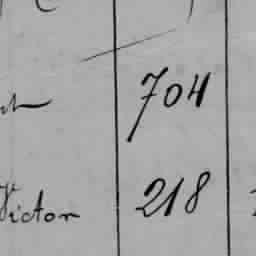 704
Victor 218